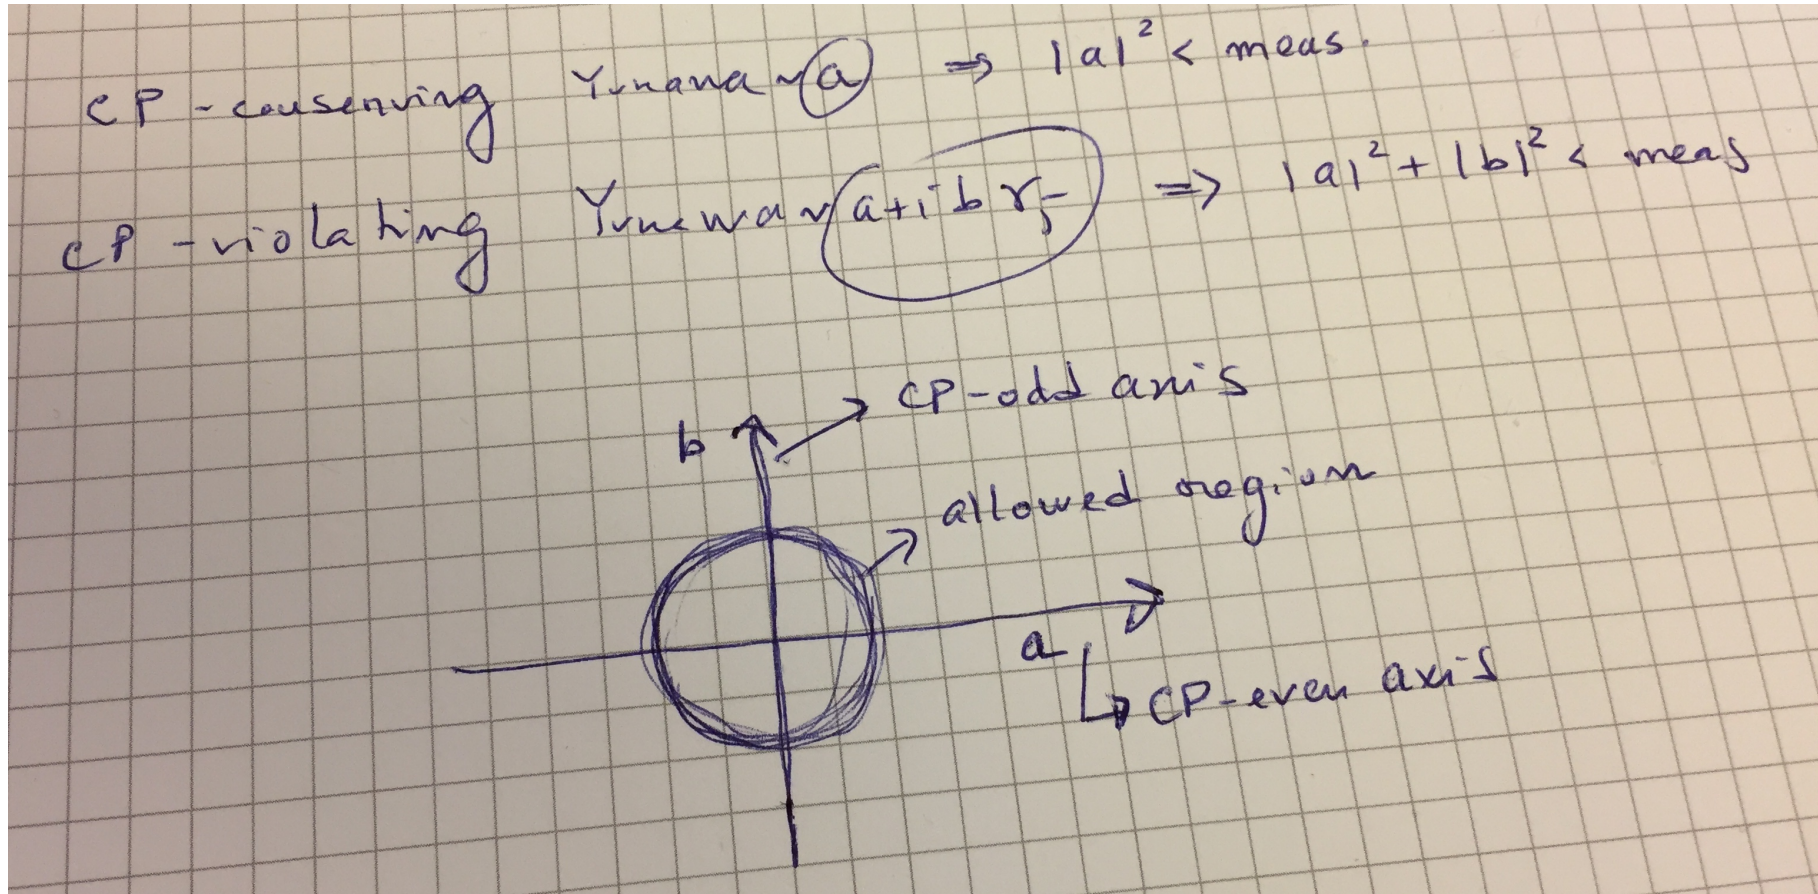 CP-conserving Yukawa ~ a ⇒ |a|² < meas.
CP-violating Yukawa ~ a+ibγ₅ ⇒ |a|² + |b|² < meas
b → CP-odd axis
→ allowed region
a
↳ CP-even axis